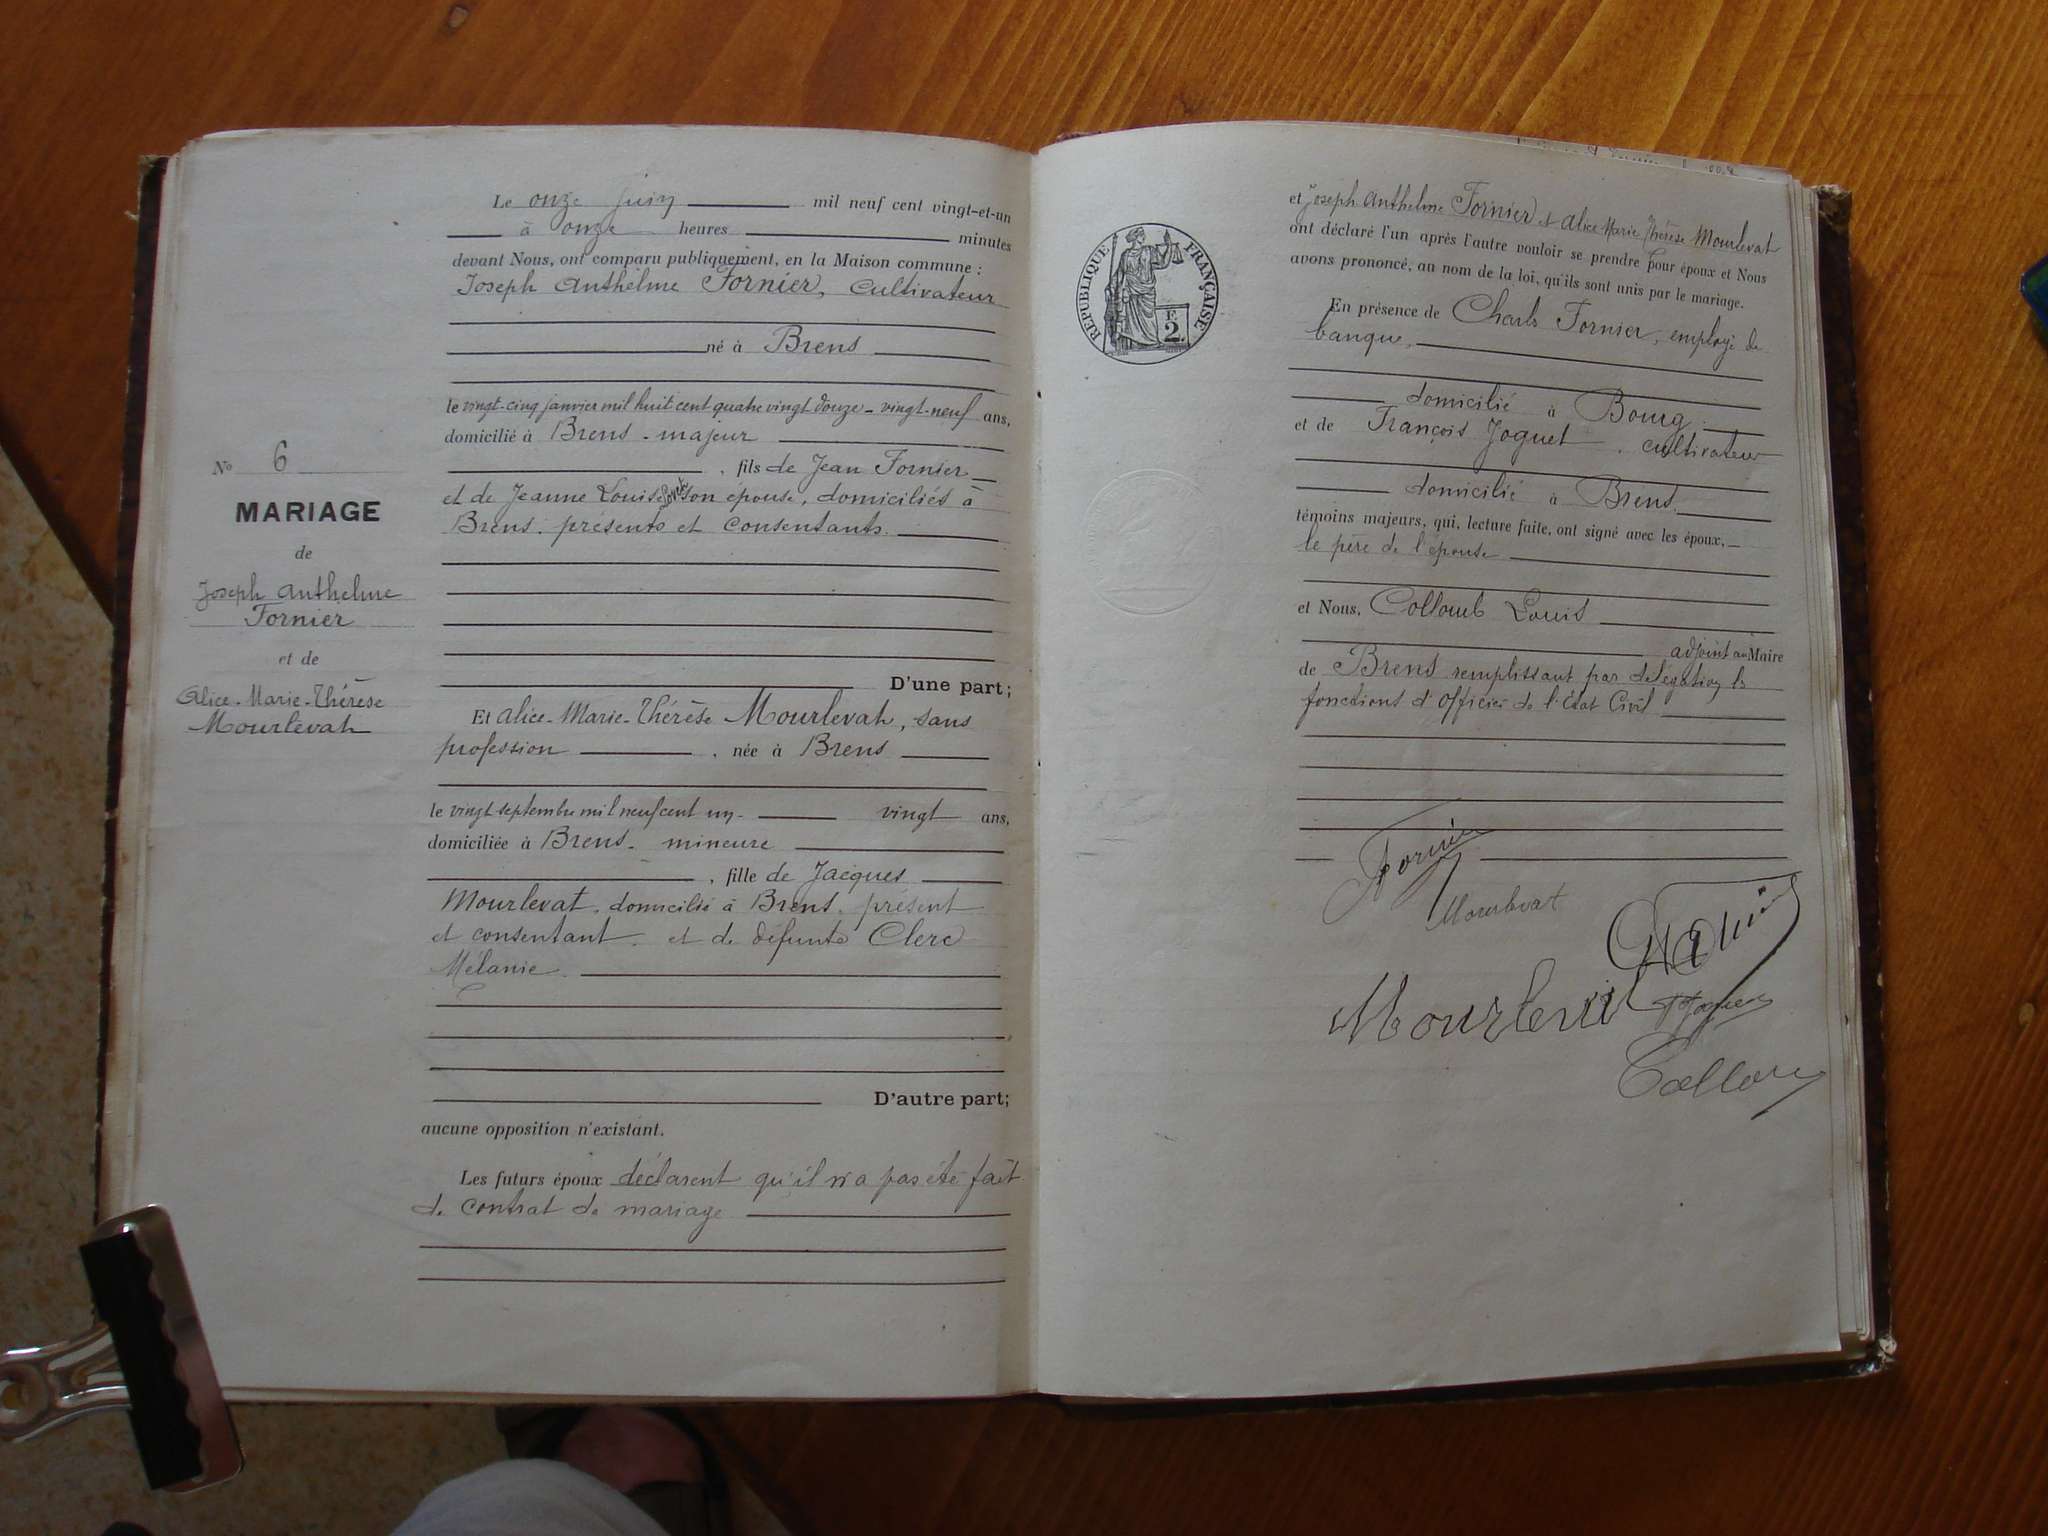 Le onze Juin mil neuf cent vingt-et-un
à onze heures minutes
devant Nous, ont comparu publiquement, en la Maison commune :
Joseph Anthelme Fornier, Cultivateur
né à Brens
le vingt-cinq janvier mil huit cent quatre vingt douze - vingt-neuf ans,
domicilié à Brens - majeur
, fils de Jean Fornier
et de Jeanne Louise son épouse, domiciliés à
Brens. présents et consentants.
No 6
MARIAGE
de
Joseph Anthelme
Fornier
et de
Alice-Marie-Thérèse
Mourlevat
D'une part;
Et Alice-Marie-Thérèse Mourlevat, sans
profession , née à Brens
le vingt septembre mil neuf cent un - vingt ans,
domiciliée à Brens - mineure
, fille de Jacques
Mourlevat, domicilié à Brens, présent
et consentant. et de défunte Clerc
Mélanie.
D'autre part;
aucune opposition n'existant.
Les futurs époux déclarent qu'il n'a pas été fait
de contrat de mariage
RÉPUBLIQUE FRANÇAISE
F.
2.
et Joseph Anthelme Fornier & Alice Marie Thérèse Mourlevat
ont déclaré l'un après l'autre vouloir se prendre pour époux et Nous
avons prononcé, au nom de la loi, qu'ils sont unis par le mariage.
En présence de Charles Fornier, employé de
banque,
domicilié à Bourg
et de François Joguet, cultivateur
domicilié à Brens.
témoins majeurs, qui, lecture faite, ont signé avec les époux,
le père de l'épouse
et Nous, Collomb Louis
adjoint au Maire
de Brens remplissant par délégation les
fonctions d'Officier de l'Etat Civil
Fornier
Mourlevat
Mourlevat